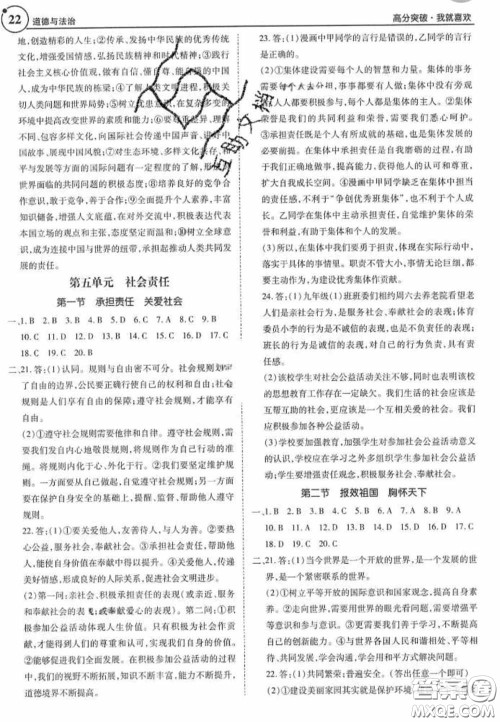 22 道德与法治
高分突破·我就喜欢
地,创造精彩的人生;②传承、发扬中华民族的优秀传统
文化,增强爱国情感,增强中华文化的认同感;③践行
社会主义核心价值观,做有自信、懂自尊、能自强的中国人,
成为中华民族的栋梁;④了解人类文明进程,积极关
切人类问题和世界局势;⑤树立忧患意识,在复杂多变的
环境中提高改变世界的素质与能力;⑥要尊重、理解
不同,包容多样文化,向国际社会传递中国声音、讲好中
国故事,展中国风貌;⑦对世界的生态环境、多样文化共存、和
平与发展等方面的国际问题有一定程度的了解,形成
世界面临的共同问题的积极态度;⑧培养良好的竞争合
作意识,敢于竞争,善于合作;⑨全面提升个人素养,丰富
知识储备,增强人文底蕴,在对外交流中,积极表达代表
本国立场的观点和主张,态度坚定而温和;⑩树立全球意
识,成为连接中国与世界的纽带,承担起推动人类共同发
展的责任。
第五单元 社会责任
第一节 承担责任 关爱社会
一、1. B 2. B 3. B 4. D 5. D 6. D 7. A 8. C 9. C
10. C 11. C 12. D 13. D 14. C 15. B 16. D 17. C
18. C 19. C 20. B
二、21. 答:(1)认同。规则与自由密不可分。社会规则划定
了自由的边界,公民要正确行使自己的权利和自由;社会
规则是人们享有自由的保障;遵守社会规则,才能享有自
由。
(2)①遵守社会规则需要他律和自律。遵守社会规则,需
要我们发自内心地敬畏规则,将规则作为自己行动的准
绳。将规则内化于心,外化于行。②我们要坚定维护规
则。一方面,从自己做起,自觉遵守规则。另一方面,要
在保护自身安全的基础上,提醒、监督、帮助他人遵守规
则。
22. 答:(1)①要关爱他人,友善待人,与人为善。②要热
心公益,服务社会、奉献社会。③承担责任,服务社会,能
使自身价值在奉献中得以提升。④关爱他人,传递
美好情感,形成良好的人际关系,促进社会文明进步。
(2)第一问:亲社会、积极承担责任的表现(或亲近、服务
和奉献社会的表现,或奉献爱心的表现)。第二问:①积
极参加公益活动体现人生价值。只有积极为社会作贡
献,才能得到人们的尊重和认可,实现我们自身的价值。
②亲社会能促进我们全面发展。在积极参加公益活动的
过程中,我们的视野不断拓展,知识不断丰富,能力不断提升,
道德境界不断提高。
23. 答:(1)漫画中甲同学的言行是错误的,乙同学的言行
是正确的。
(2)①集体建设需要每个人的智慧和力量。集体的事务
需要每个人去分担,事事都要有人做。集体中没有旁观
者,人人都要积极参与,每个人都是集体的主人。②集体
荣誉是我们共同的利益和荣誉,需要我们悉心呵护。
③承担责任既是个人有所成就的基础,也是集体发展的
必要前提。在集体中承担责任是自我磨砺的过程,有助
于我们完善自己,提高能力,获得他人的认可和尊重,
扩大自我成长空间。④漫画中甲同学缺乏在集体中承担
责任的意识,不利于“争创优秀班集体”,也不利于个人成
长。乙同学在集体中主动承担责任,自觉维护集体的荣
誉和利益,有利于集体建设和自身发展。
(3)所以,在集体中我们要勇担责任,体现在实际行动中,
落实于具体事情中。职责不分大小,事情无论巨细,都要
主动作为,为建设优秀集体作贡献。
24. 答:(1)九年级(1)班班委们相约周六去养老院看望老
人们是亲社会行为,是积极服务社会、奉献社会的表现;体育
委员小李的行为是不诚信的表现,也是不负责任的表现;
班长的行为是诚信的表现,对自己的行为负责,具有责
任感。
(2)该校学生对社会公益活动关注不够,同时也体现该校
的思想教育工作存在一定的欠缺。我们生活的社会应是
互帮互助的社会,更应该是一个互相关爱的社会。我们
应积极参加各种公益活动。
(3)学校要加强教育,加强学生对参加社会公益活动意义
的了解。定期组织学生参加社会公益活动。学生要培养
亲社会行为,增强责任意识,积极服务社会、奉献社会。
第二节 报效祖国 胸怀天下
一、1. B 2. D 3. D 4. C 5. C 6. A 7. A 8. D 9. A
10. D 11. A 12. B 13. D 14. B 15. B 16. C 17. D
18. C 19. D 20. A
二、21. 答:(1)当今世界是一个开放的世界,是一个发展的世
界,是一个紧密联系的世界。
(2)①树立平等开放的国际意识和国家观念,提高思想认
识。②需要用世界的眼光看待问题,不断增强平等对话
意识和参与意识。③更需要善于学习,不断提高自己的
创新能力。④与世界各国人民和谐相处,平等相
待、共同发展,学会用和平方式解决问题。
22. 答:(1)共同繁荣;普遍安全。(任意一点即可)
(2)建设美丽家园其实就是保护环境